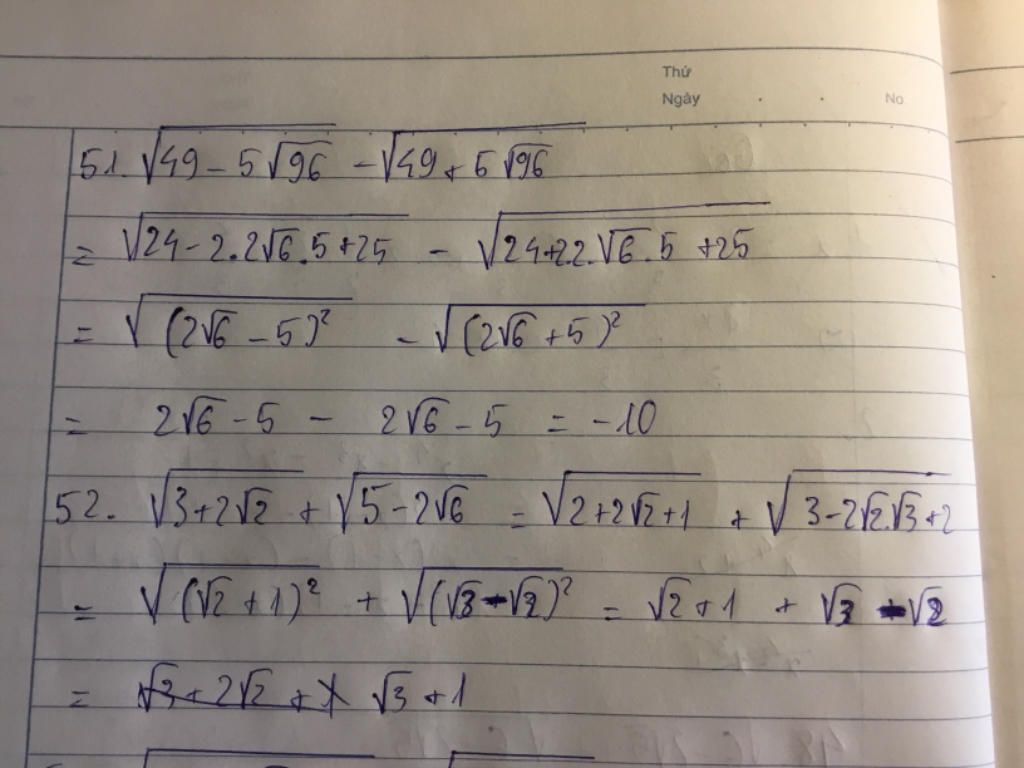 Thứ
Ngày No.
51. √(49 - 5√96) - √(49 + 5√96)
= √(24 - 2.2√6.5 + 25) - √(24 + 2.2.√6.5 + 25)
= √((2√6 - 5)²) - √((2√6 + 5)²)
= 2√6 - 5 - 2√6 - 5 = -10
52. √(3 + 2√2) + √(5 - 2√6) = √(2 + 2√2 + 1) + √(3 - 2√2.√3 + 2)
= √((√2 + 1)²) + √((√3 - √2)²) = √2 + 1 + √3 - √2
= √3 + 2√2 + 1 √3 + 1